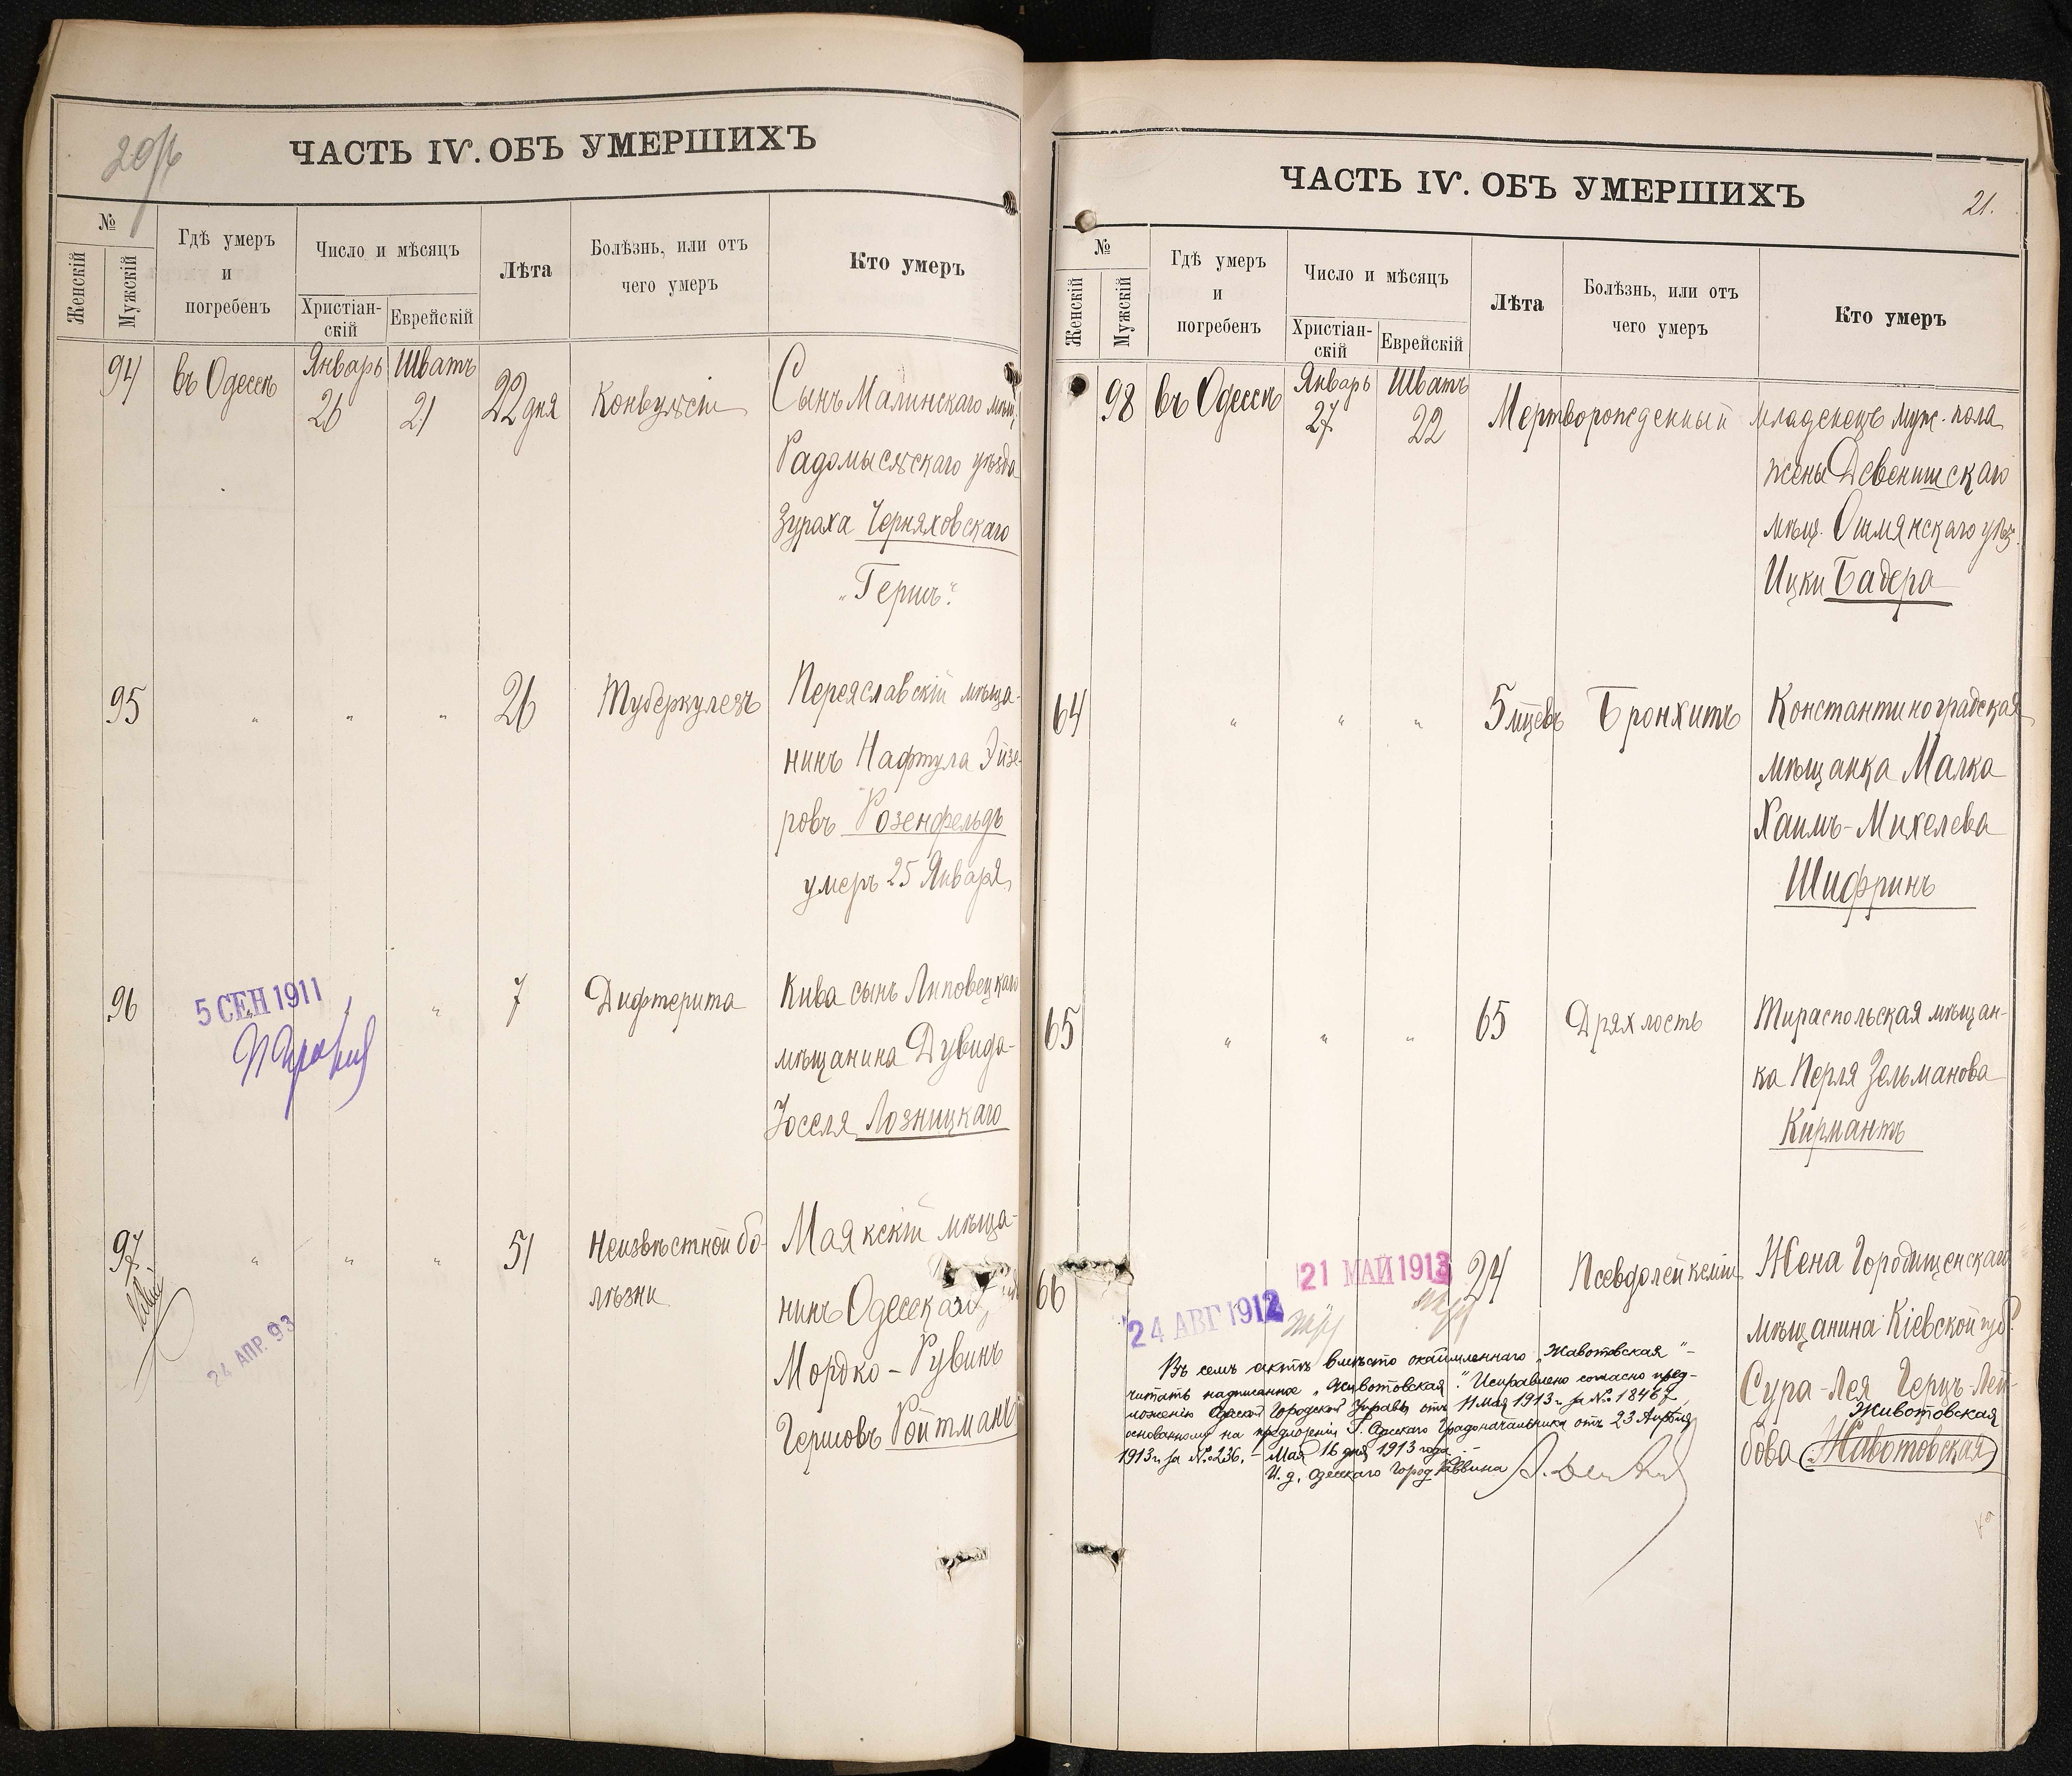 20
ЧАСТЬ IV. ОБЪ УМЕРШИХЪ
№
Женскій
Мужскій
Гдѣ умеръ
и
погребенъ
Число и мѣсяцъ
Христіан-
скій
Еврейскій
Лѣта
Болѣзнь, или отъ
чего умеръ
Кто умеръ
94 въ Одессѣ Январь 26 Шватъ 21 22 дня Конвульсіи Сынъ Малинскаго мѣщ.
Радомысльскаго уѣзда
Зураха Черняховскаго
„Гершъ".
95 " " " 26 Туберкулезъ Переяславскій мѣща-
нинъ Нафтула Эйзе-
ровъ Розенфельдъ
умеръ 25 Января
96 5 СЕН 1911 " 7 Дифтерита Кива сынъ Липовецкаго
мѣщанина Дувида-
Іоселя Лозницкаго
97 " " " 51 Неизвѣстной бо-
лѣзни
Маякскій мѣща-
нинъ Одесскаго
Мордко-Рувинъ
Гершовъ Ройтманъ
24 АПР. 93
ЧАСТЬ IV. ОБЪ УМЕРШИХЪ
21.
№
Женскій
Мужскій
Гдѣ умеръ
и
погребенъ
Число и мѣсяцъ
Христіан-
скій
Еврейскій
Лѣта
Болѣзнь, или отъ
чего умеръ
Кто умеръ
98 въ Одессѣ Январь 27 Шватъ 22 Мертворожденный младенецъ муж. пола
жены Девенишскаго
мѣщ. Ошмянскаго уѣз.
Ицки Бадера
64 " " " 5 мцевъ Бронхитъ Константиноградская
мѣщанка Малка
Хаимъ-Михелева
Шифринъ
65 " " " 65 Дряхлость Тираспольская мѣщан-
ка Перля Зельманова
Кирмантъ
66 24 АВГ 1912 21 МАЙ 1913 24 Псевдолейкемія Жена Городищенскаго
мѣщанина Кіевской губ.
Сура-Лея Герцъ-Лей-
Животовская
бова Жавотовская
Въ семъ актѣ вмѣсто окаймленнаго „Жавотовская"-
читать надписанное „Животовская". Исправлено согласно пред-
ложенію Одесской Городской Управы отъ 11 мая 1913 г. за №. 18467,
основанному на предложеніи Г. Одесскаго Градоначальника отъ 23 Апрѣля
1913 г. за №. 236. - Мая 16 дня 1913 года.-
И. д. Одесскаго Город. Раввина